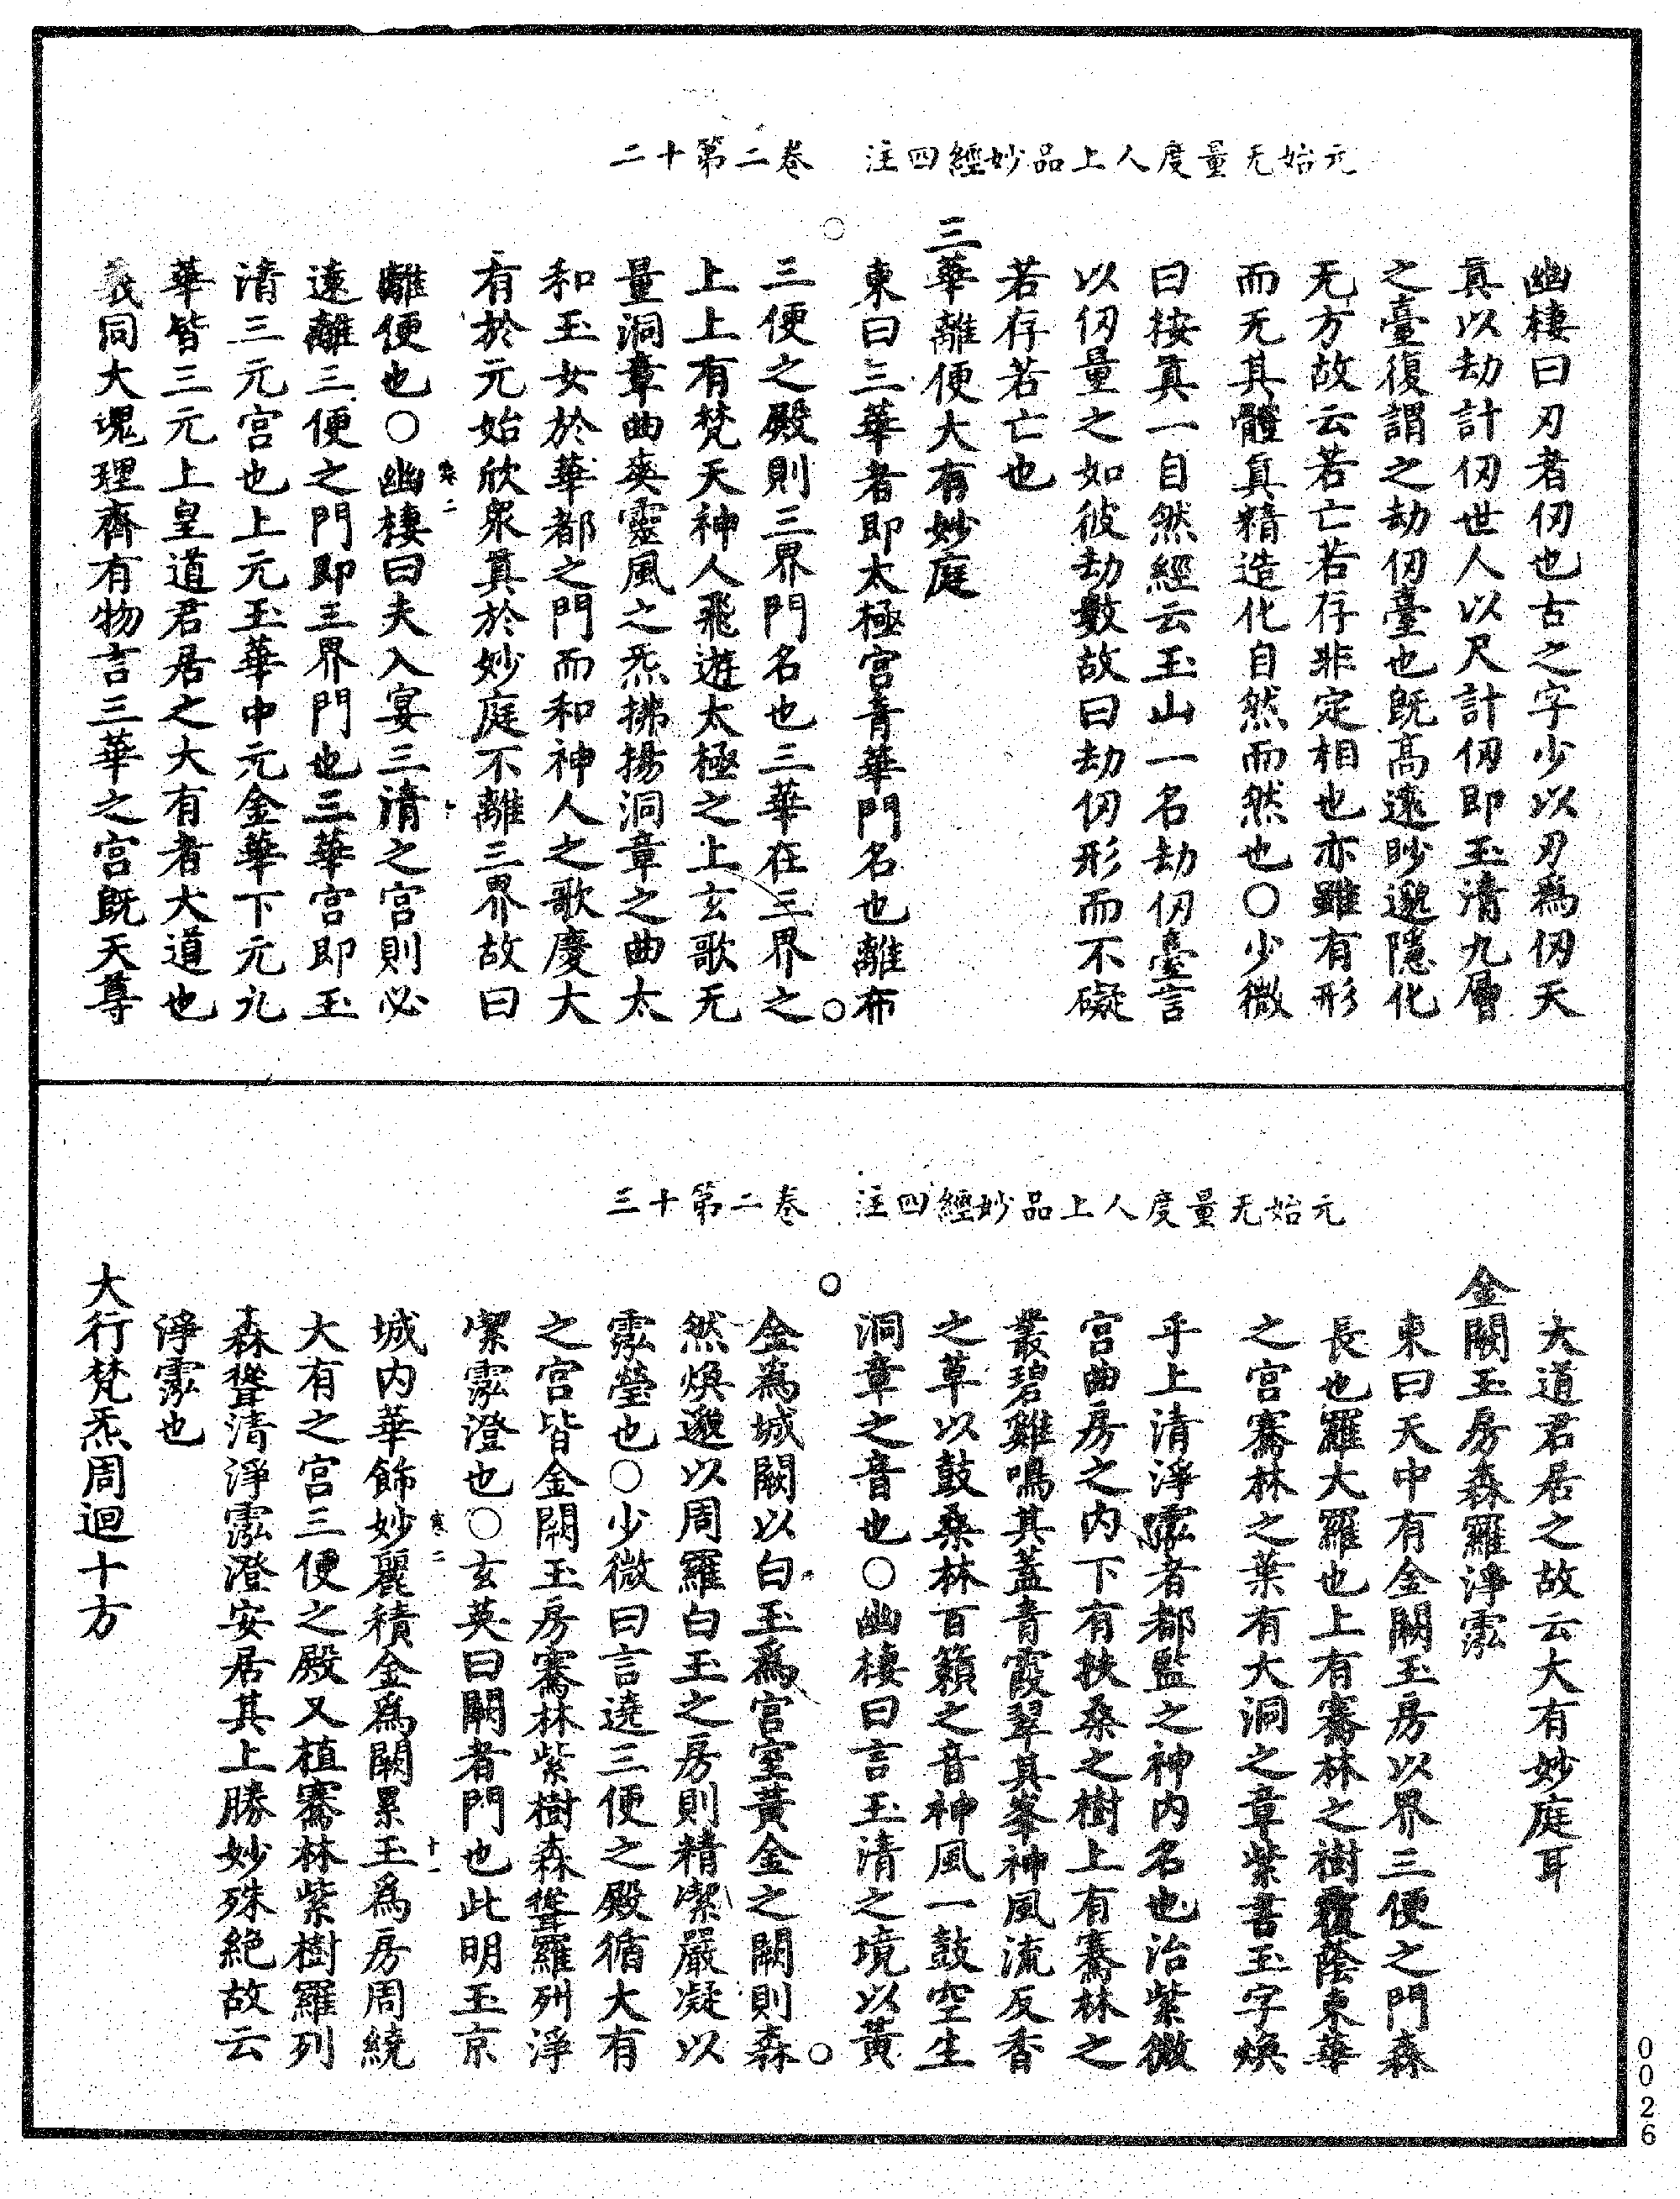 元始无量度人上品妙經四注　卷二第十二
幽棲曰刃者仞也古之字少以刃爲仞天
真以劫計仞世人以尺計仞即玉清九層
之臺復謂之劫仞臺也既高遠眇邈隱化
无方故云若亡若存非定相也亦雖有形
而无其體真精造化自然而然也○少微
曰按真一自然經云玉山一名劫仞臺言
以仞量之如彼劫數故曰劫仞形而不礙
若存若亡也
三華離便大有妙庭
東曰三華者即太極宮青華門名也離布
三便之殿則三界門名也三華在三界之
上上有梵天神人飛遊太極之上玄歌无
量洞章曲奏靈風之炁拂揚洞章之曲太
和玉女於華都之門而和神人之歌慶大
有於元始欣衆真於妙庭不離三界故曰
離便也○幽棲曰夫入宴三清之宮則必
遠離三便之門即三界門也三華宮即玉
清三元宮也上元玉華中元金華下元九
華皆三元上皇道君居之大有者大道也
義同大塊理齊有物言三華之宮既天尊
元始无量度人上品妙經四注　卷二第十三
大道君居之故云大有妙庭耳
金闕玉房森羅淨泓
東曰天中有金闕玉房以界三便之門森
長也羅大羅也上有騫林之樹覆蔭東華
之宮騫林之葉有大洞之章紫書玉字煥
乎上清淨泓者都監之神內名也治紫微
宮曲房之內下有扶桑之樹上有騫林之
叢碧雞鳴其蓋青霞翠其峯神風流反香
之草以鼓桑林百籟之音神風一鼓空生
洞章之音也○幽棲曰言玉清之境以黃
金為城闕以白玉爲宮室黃金之闕則森
然煥邈以周羅白玉之房則精潔嚴凝以
泓瑩也○少微曰言遶三便之殿循大有
之宮皆金闕玉房騫林紫樹森聳羅列淨
潔泓澄也○玄英曰闕者門也此明玉京
城內華飾妙麗積金爲闕累玉爲房周繞
大有之宮三便之殿又植騫林紫樹羅列
森聳清淨泓澄安居其上勝妙殊絕故云
淨泓也
大行梵炁周迴十方
0026